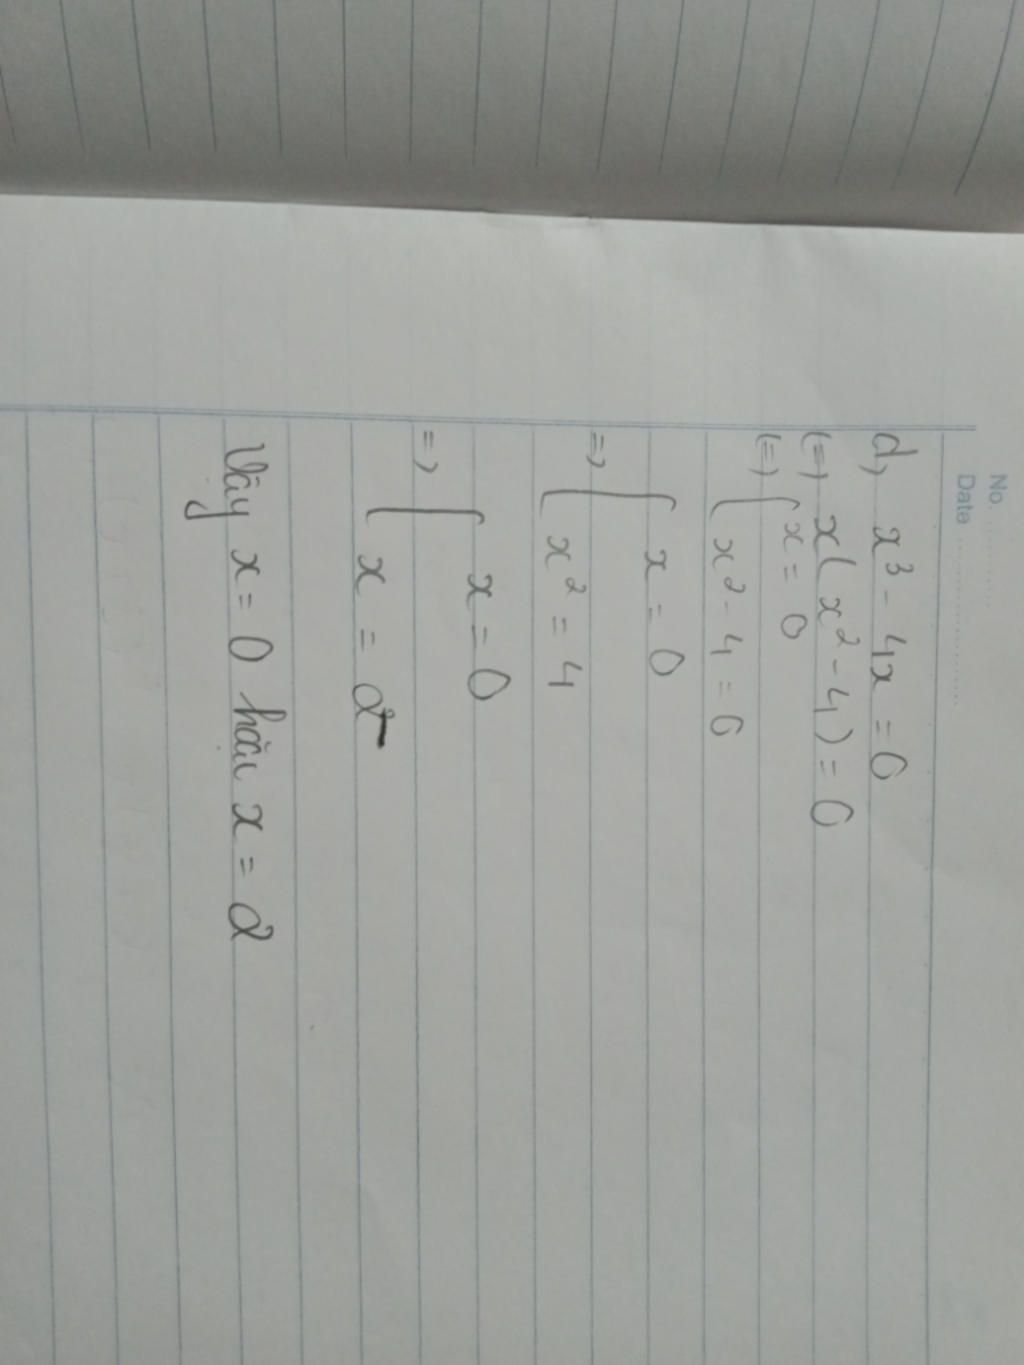 No. ............
Date ........................
d, x³ - 4x = 0
(=) x(x² - 4) = 0
(=) [ x = 0
[ x² - 4 = 0
=> [ x = 0
[ x² = 4
=> [ x = 0
[ x = 2
Vậy x = 0 hoặc x = 2